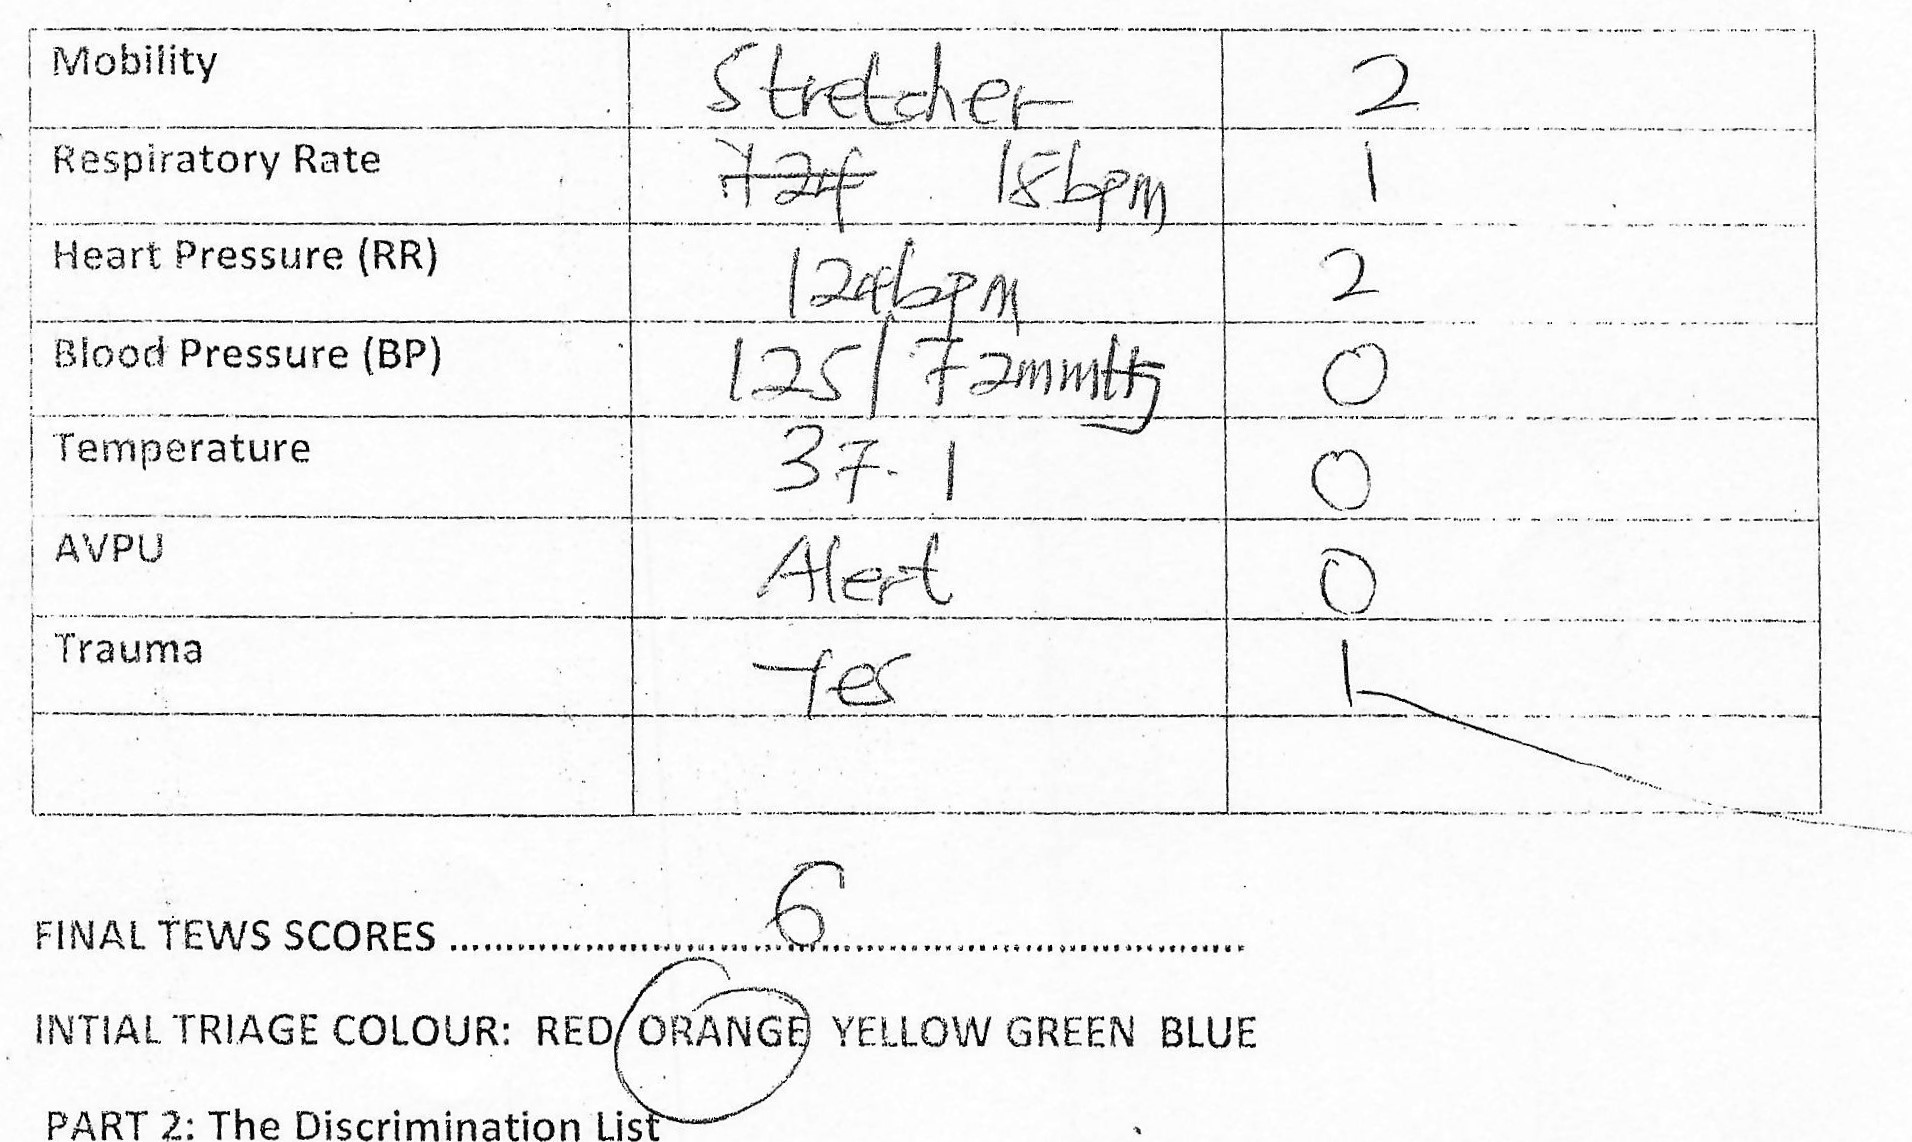 Mobility Stretcher 2
Respiratory Rate 18bpm 1
Heart Pressure (RR) 124bpm 2
Blood Pressure (BP) 125/72mmHg 0
Temperature 37.1 0
AVPU Alert 0
Trauma Yes 1
FINAL TEWS SCORES ........ 6 ........
INTIAL TRIAGE COLOUR: RED ORANGE YELLOW GREEN BLUE
PART 2: The Discrimination List